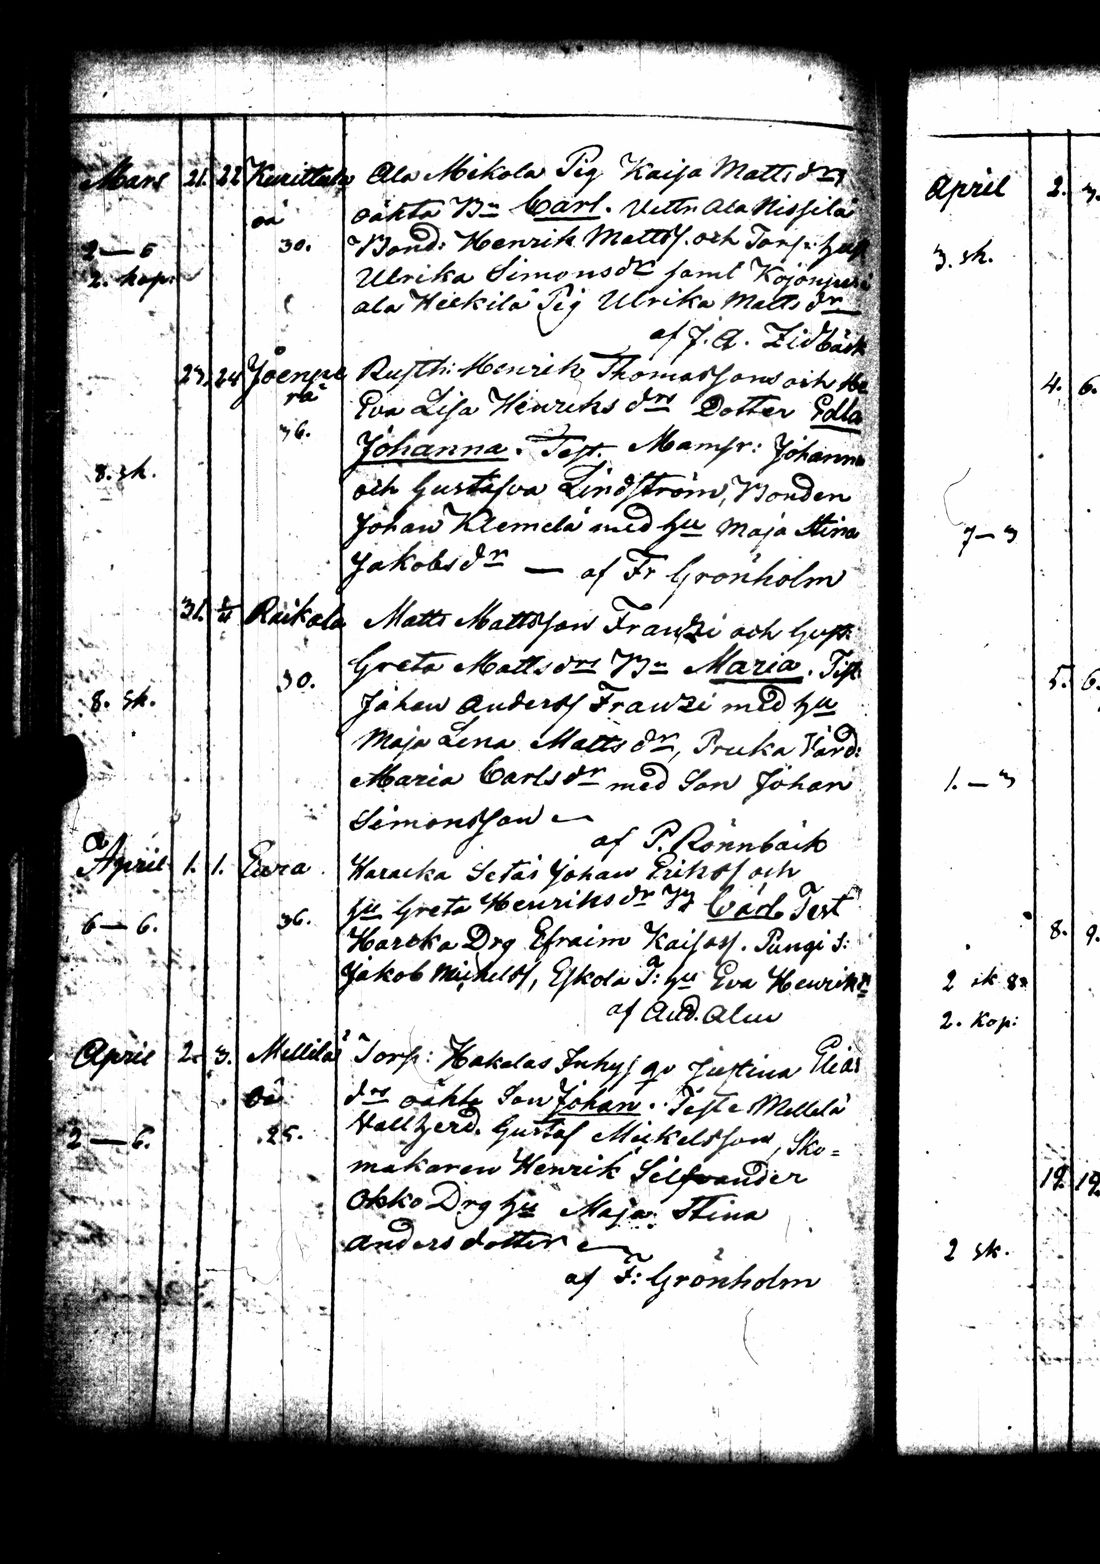 Mars 21. 22 Kurittula Ala Mikola Pig Kaija Mattsdrs
oä oäkta Bn Carl. Vittn Ala Nissilä
2—6 30. Bond: Henrik Mattss. och Torp: hust
2. kop: Ulrika Simonsdr saml
ala Heikilä Pig Ulrika Mattsdr
af J. A. Zidbäck
23. 24 Joenpe Rusth: Henrik Thomassons och
rä Eva Lisa Henriksdrs Dotter Edla
36. Johanna. Test. Mamsr: Johanna
8. sk. och Gustafva Lindström, Bonden
Johan Klemelä med hu Maja Stina
Jakobsdr — af Fr Grönholm
31. Raikola Matts Mattsson Franssi och hust:
30. Greta Mattsdrs Bn Maria. Test
8. sk. Johan Anderss Franssi med hu
Maja Lena Mattsdr, Prukka Värd:
Maria Carlsdr med Son Johan
Simonsson
af P. Rönnbäck
April 1. 1. Eura Harakka Setas Johan Erikss och
6—6. 36. hu Greta Henriksdr Carl Test
Harcka Drg Efraim Kaijass. Pungi S:
Jakob Michelss, Eskola T: hu Eva Henriksdr
af And. Alen
April 2. 3. Mellilä Torp: Hakalas Inhys qv Justina Elias
oä drs oäkta Son Johan. Teste Mellelä
2—6. 25. Vallherd. Gustaf Mickelsson, Sko=
makaren Henrik Silfvander
Okko Drg hu Maja Stina
Andersdotter
af F: Grönholm
April 2.
3. sk.
4. 6.
7—3
5. 6.
1.—3
8. 9.
2 sk 8
2. kop:
19. 19.
2 sk.